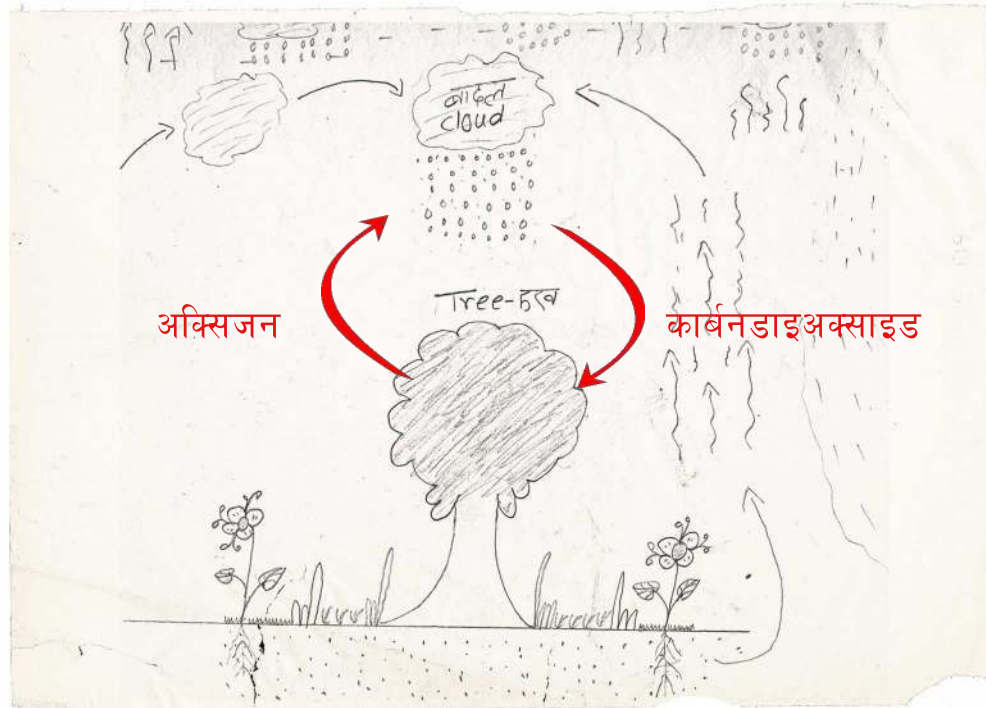 बादल
cloud
Tree-
अक्सिजन
कार्बनडाइअक्साइड